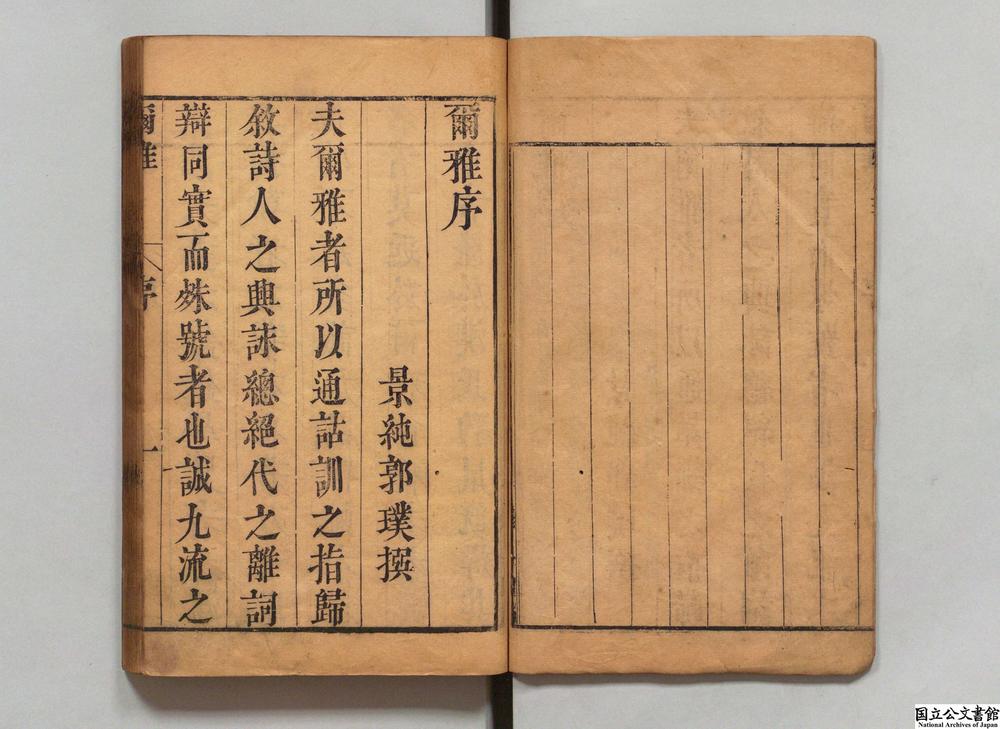 爾雅序
景純郭璞撰
夫爾雅者所以通詁訓之指歸
敘詩人之興詠總絕代之離詞
辯同實而殊號者也誠九流之
爾雅 序 一
国立公文書館
National Archives of Japan